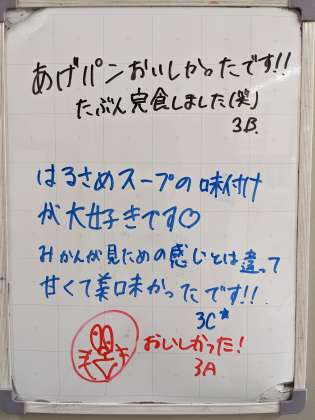 あげパンおいしかったです!!
たぶん完食しました(笑)
3B.
はるさめスープの味付け
が大好きです♡
みかんが見ための感じとは違って
甘くて美味かったです!!
3C*
おいしかった!
3A